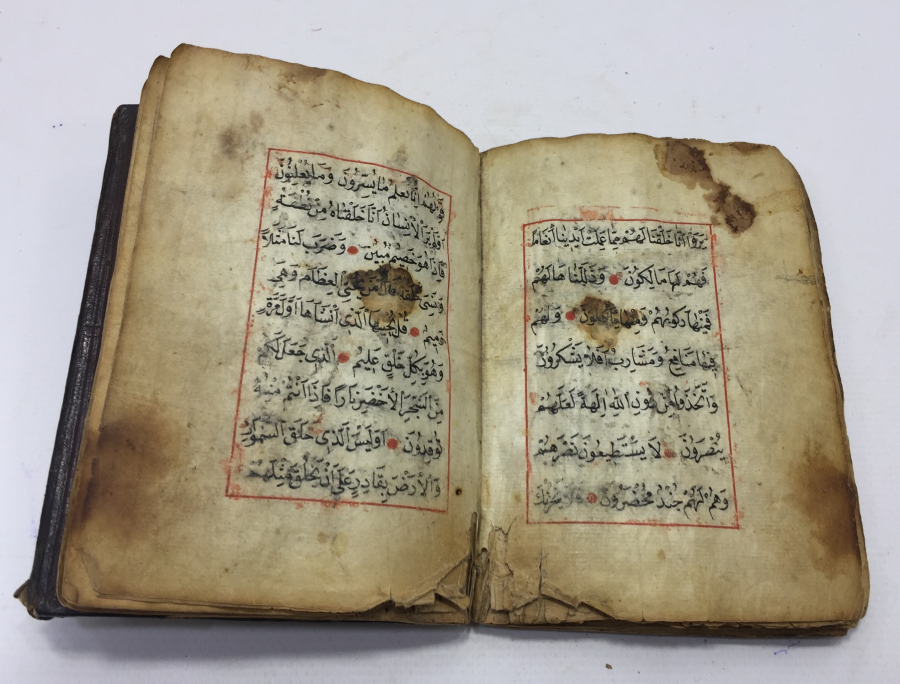 يَرَوْا اَنَّا خَلَقْنَا لَهُمْ مِمَّا عَمِلَتْ اَيْدِينَا اَنْعَامًا
فَهُمْ لَهَا مَالِكُونَ وَذَلَّلْنَاهَا لَهُمْ
فَمِنْهَا رَكُوبُهُمْ وَمِنْهَا يَأْكُلُونَ وَلَهُمْ
فِيهَا مَنَافِعُ وَمَشَارِبُ اَفَلَا يَشْكُرُونَ
وَاتَّخَذُوا مِنْ دُونِ اللّٰهِ اٰلِهَةً لَعَلَّهُمْ
يُنْصَرُونَ لَا يَسْتَطِيعُونَ نَصْرَهُمْ
وَهُمْ لَهُمْ جُنْدٌ مُحْضَرُونَ فَلَا يَحْزُنْكَ
قَوْلُهُمْ اِنَّا نَعْلَمُ مَا يُسِرُّونَ وَمَا يُعْلِنُونَ
اَوَلَمْ يَرَ الْاِنْسَانُ اَنَّا خَلَقْنَاهُ مِنْ نُطْفَةٍ
فَاِذَا هُوَ خَصِيمٌ مُبِينٌ وَضَرَبَ لَنَا مَثَلًا
وَنَسِىَ خَلْقَهُ قَالَ مَنْ يُحْيِى الْعِظَامَ وَهِىَ
رَمِيمٌ قُلْ يُحْيِيهَا الَّذِى اَنْشَاَهَا اَوَّلَ مَرَّةٍ
وَهُوَ بِكُلِّ خَلْقٍ عَلِيمٌ اَلَّذِى جَعَلَ لَكُمْ
مِنَ الشَّجَرِ الْاَخْضَرِ نَارًا فَاِذَا اَنْتُمْ مِنْهُ
تُوقِدُونَ اَوَلَيْسَ الَّذِى خَلَقَ السَّمٰوَاتِ
وَالْاَرْضَ بِقَادِرٍ عَلٰى اَنْ يَخْلُقَ مِثْلَهُمْ